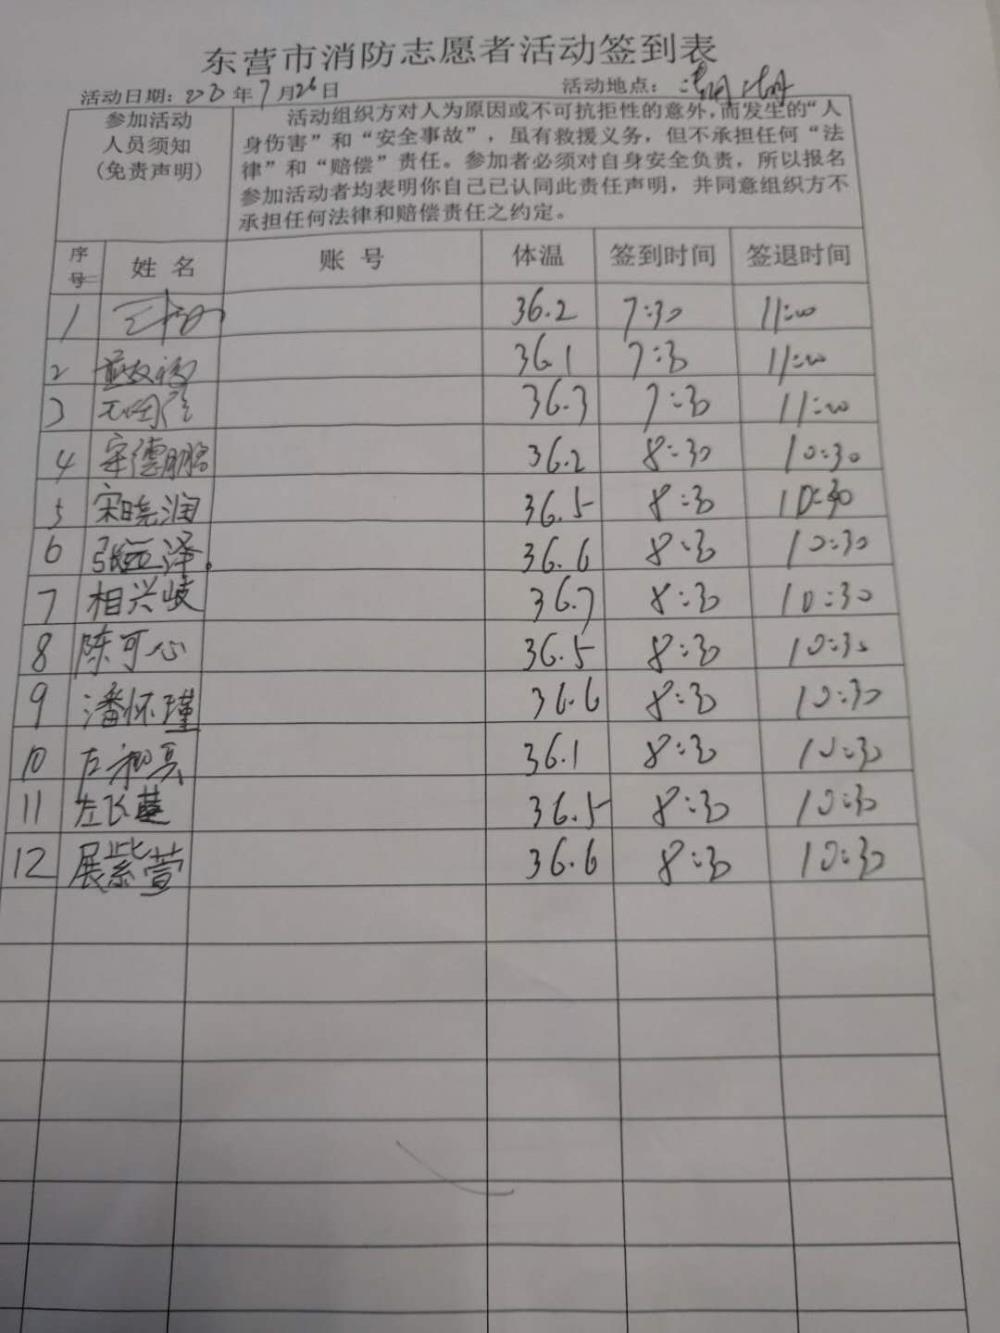 东营市消防志愿者活动签到表
活动日期: 年7月26日 活动地点:
参加活动
人员须知
(免责声明)
活动组织方对人为原因或不可抗拒性的意外,而发生的“人
身伤害”和“安全事故”,虽有救援义务,但不承担任何“法
律”和“赔偿”责任。参加者必须对自身安全负责,所以报名
参加活动者均表明你自己已认同此责任声明,并同意组织方不
承担任何法律和赔偿责任之约定。
序号 姓名 账号 体温 签到时间 签退时间
1 36.2 7:30 11:00
2 36.1 7:30 11:00
3 36.3 7:30 11:00
4 宋德鹏 36.2 8:30 10:30
5 宋晓润 36.5 8:30 10:30
6 张 泽 36.6 8:30 10:30
7 相兴岐 36.7 8:30 10:30
8 陈可心 36.5 8:30 10:30
9 潘怀瑾 36.6 8:30 10:30
10 36.1 8:30 10:30
11 左飞 36.5 8:30 10:30
12 展紫萱 36.6 8:30 10:30